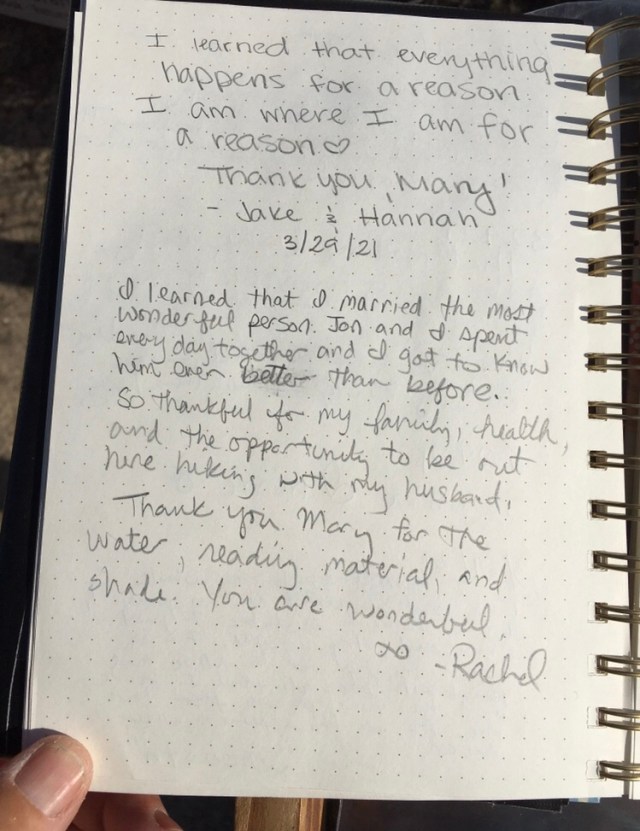 I learned that everything
happens for a reason.
I am where I am for
a reason ♡
Thank you, Mary!
- Jake & Hannah
3/29/21
I learned that I married the most
wonderful person. Jon and I spent
every day together and I got to know
him even better than before.
So thankful for my family, health,
and the opportunity to be out
here hiking with my husband.
Thank you Mary for the
water, reading material, and
shade. You are wonderful.
∞ -Rachel